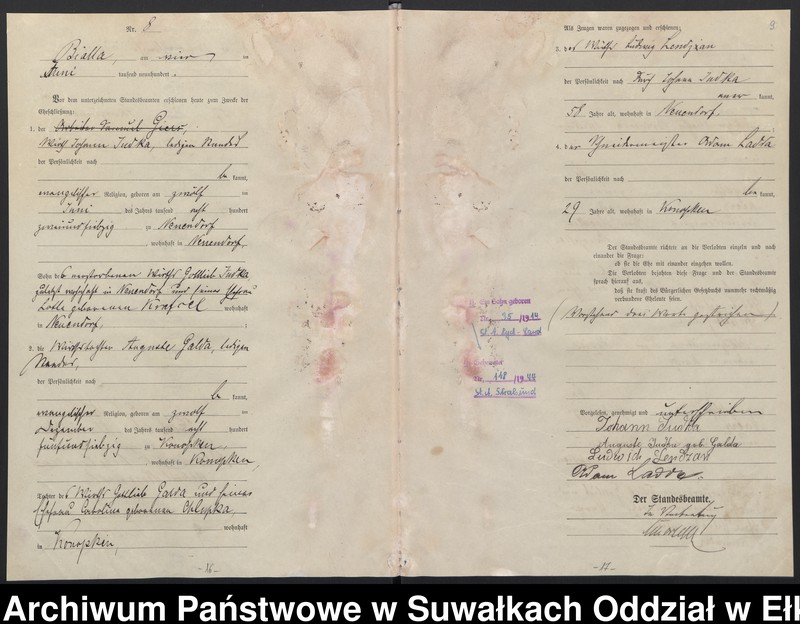 Nr. 8
Bialla, am vier ten
Juni tausend neunhundert
Vor dem unterzeichneten Standesbeamten erschienen heute zum Zwecke der
Eheschließung:
1. der Arbeiter Samuel
Wirth Johann Judka, ledigen Standes
der Persönlichkeit nach
be kannt,
evangelischer Religion, geboren am zwölf ten
Juni des Jahres tausend acht hundert
zweiundsiebzig zu Neuendorf
, wohnhaft in Neuendorf,
Sohn des verstorbenen Wirths Gottlieb Judka
zuletzt wohnhaft in Neuendorf und seiner Ehefrau
Lotte geborenen wohnhaft
in Neuendorf,
2. die Wirthstochter Auguste Galda, ledigen
Standes,
der Persönlichkeit nach
be kannt,
evangelischer Religion, geboren am zwölf ten
Dezember des Jahres tausend acht hundert
fünfundsiebzig zu Konopken,
, wohnhaft in Konopken,
Tochter des Wirths Gottlieb Galda und seiner
Ehefrau Caroline geborenen Chlupka,
wohnhaft
in Konopken,
-16-
9.
Als Zeugen waren zugezogen und erschienen:
3. der Wirth Ludwig Lendzian
der Persönlichkeit nach durch Johann Judka
aner kannt,
58 Jahre alt, wohnhaft in Neuendorf,
4. der Schneidermeister Adam Ladda
der Persönlichkeit nach
be kannt,
29 Jahre alt, wohnhaft in Konopken
Der Standesbeamte richtete an die Verlobten einzeln und nach
einander die Frage:
ob sie die Ehe mit einander eingehen wollen.
Die Verlobten bejahten diese Frage und der Standesbeamte
sprach hierauf aus,
daß sie kraft des Bürgerlichen Gesetzbuchs nunmehr rechtmäßig
verbundene Eheleute seien.
(Vorstehend drei Worte gestrichen)
Sohn geboren
95 /1914
St. A. -Land
118 /1944
St. A. Stralsund
Vorgelesen, genehmigt und unterschrieben
Johann Judka
Auguste Judka geb. Galda
Ludwich Lendzan
Adam Ladda.
Der Standesbeamte.
In Vertretung
-17-
Archiwum Państwowe w Suwałkach Oddział w Ełk